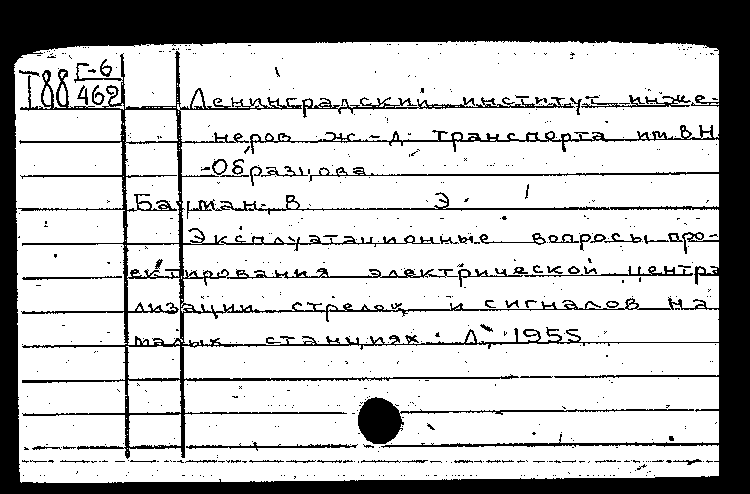 Г-6
Т88 462
Ленинградский институт инже-
неров ж.-д. транспорта им. В.Н.
-Образцова.
Бауман, В. Э.
Эксплуатационные вопросы про-
ектирования электрической центра
лизации стрелок и сигналов на
малых станциях. Л., 1955